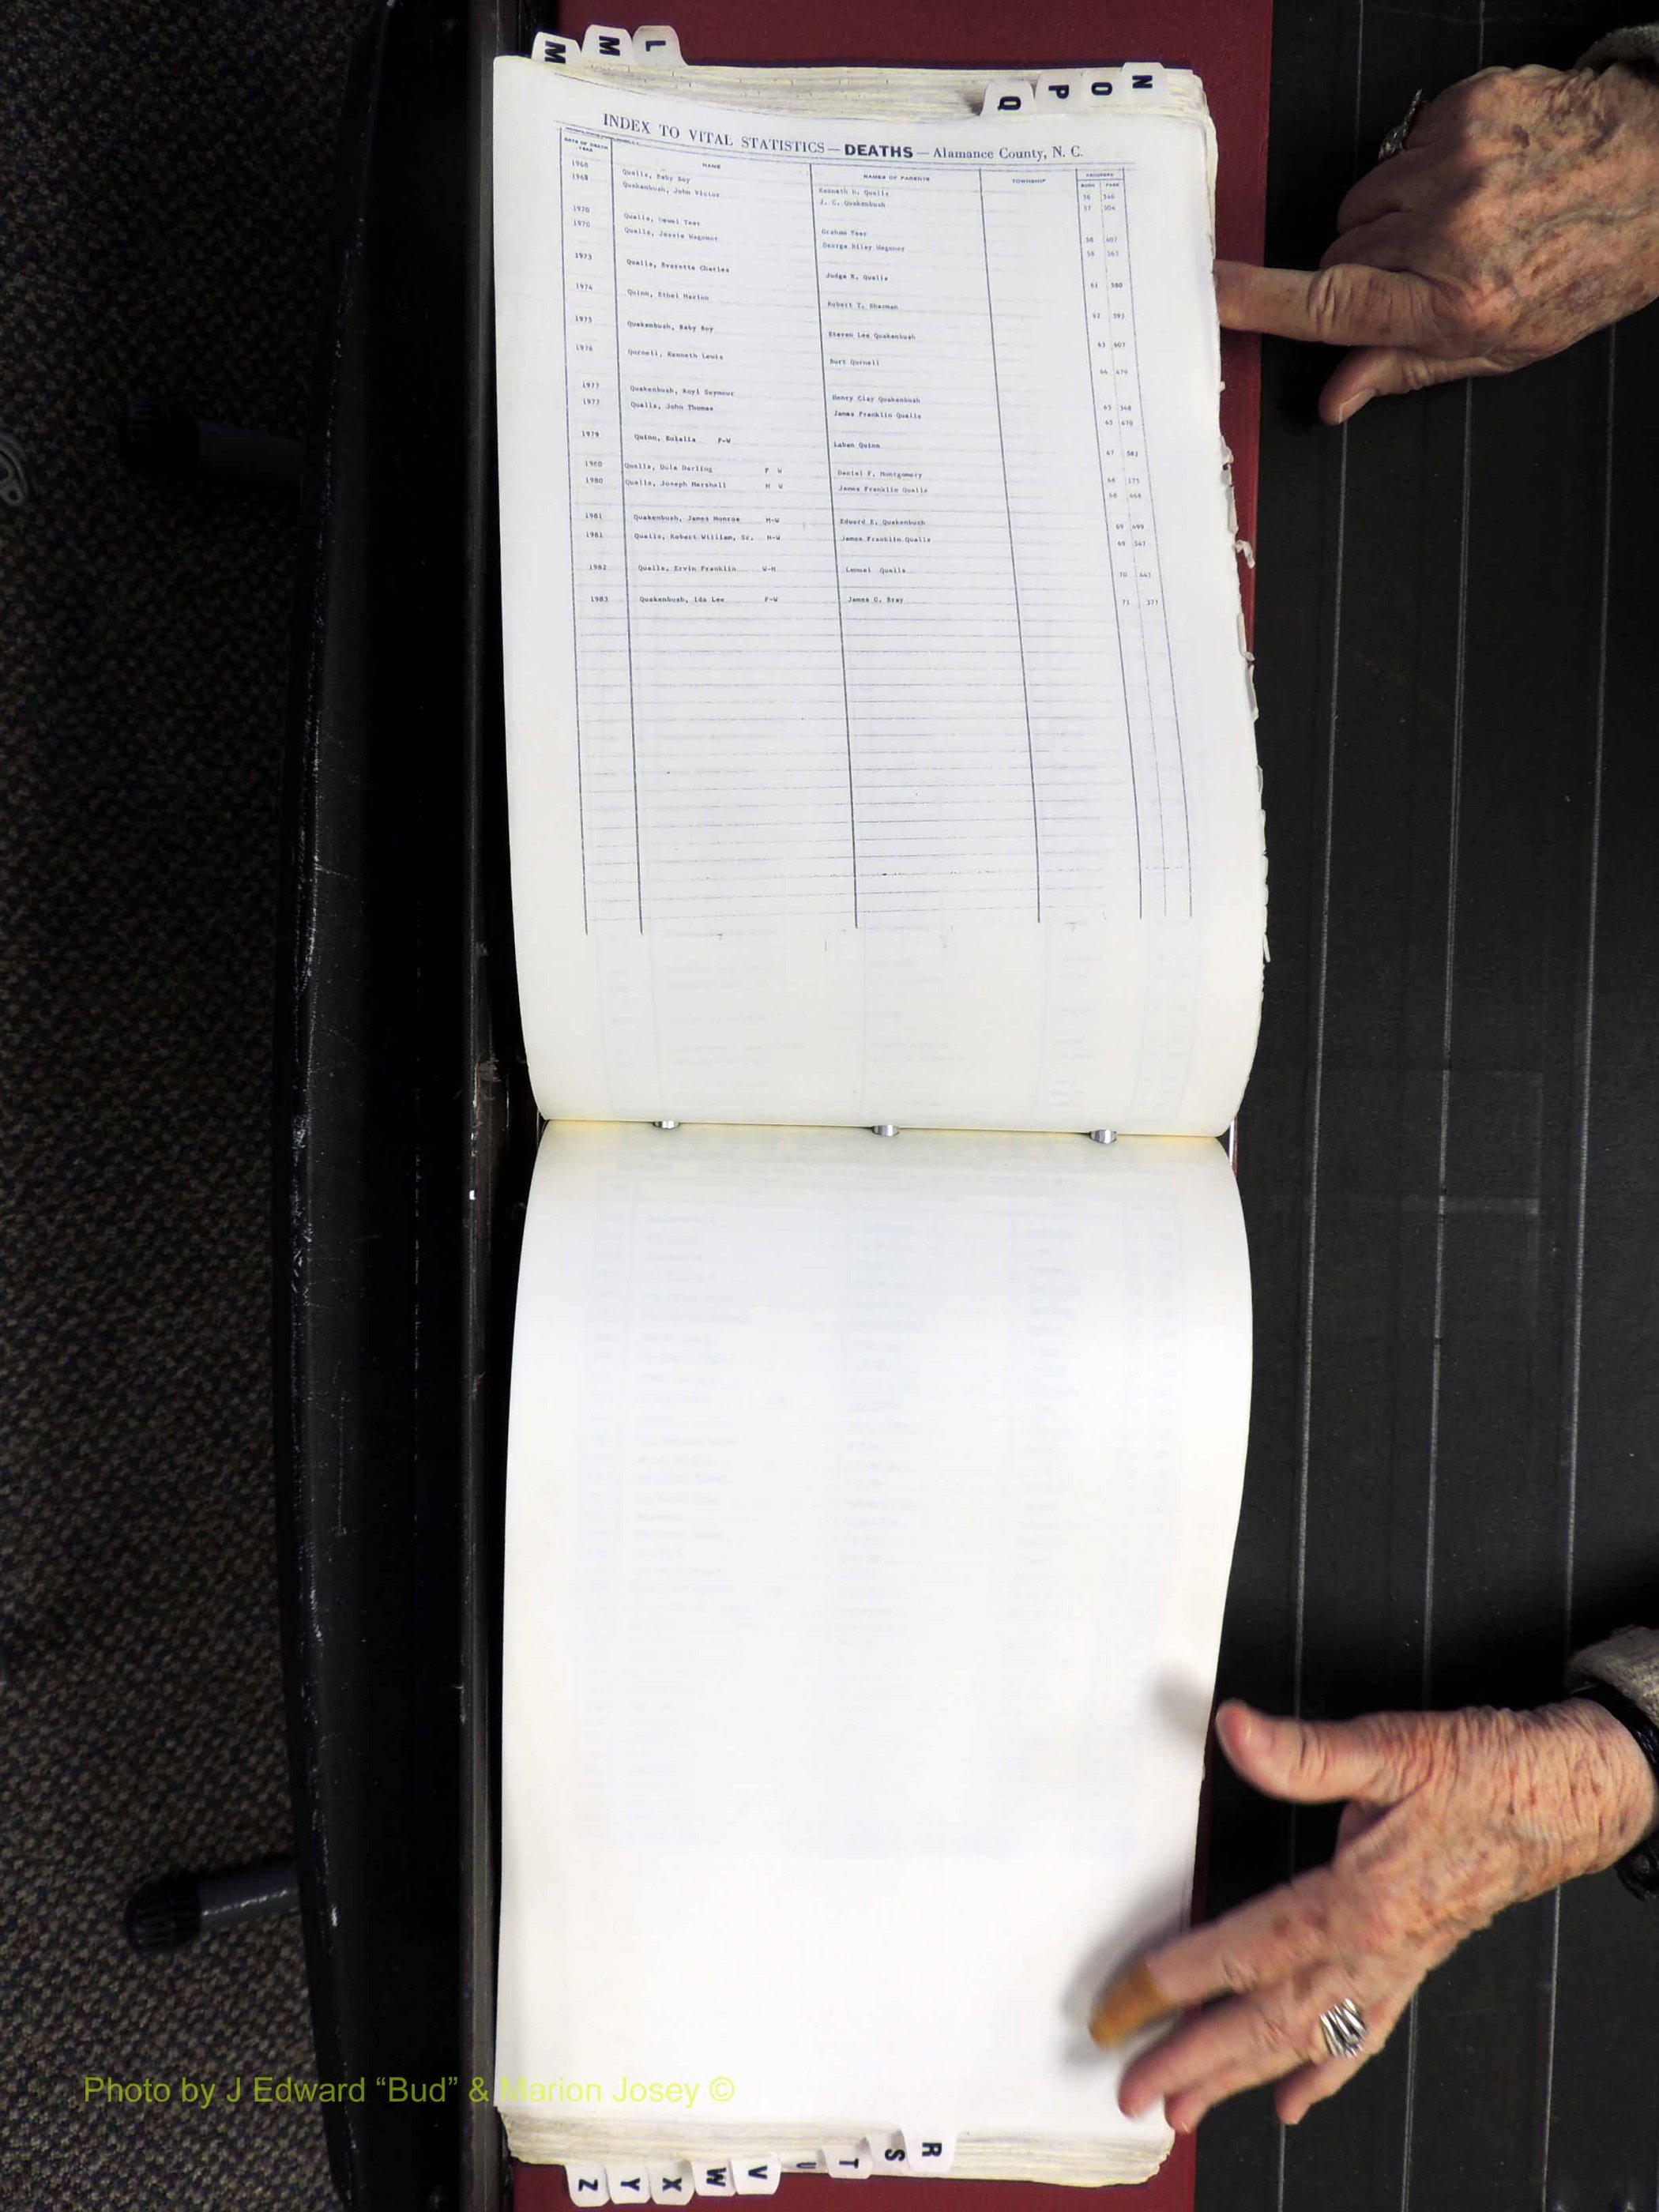 M M L
Q P O N
INDEX TO VITAL STATISTICS — DEATHS — Alamance County, N. C.
DATE OF DEATH YEAR NAME NAMES OF PARENTS TOWNSHIP RECORDED
BOOK PAGE
1968 Qualls, Baby Boy Kenneth D. Qualls 56 546
1968 Quakenbush, John Victor J. C. Quakenbush 57 304
1970 Qualls, Teer Graham Teer 58 407
1970 Qualls, Jessie Wagoner George Riley Wagoner 58 563
1973 Qualls, Everette Charles Judge R. Qualls 61 380
1974 Quinn, Ethel Marion Robert T. Sharman 62 593
1975 Quakenbush, Baby Boy Steven Lee Quakenbush 63 607
1976 Qurneli, Kenneth Lewis Burt Qurneli 64 479
1977 Quakenbush, Royl Seymour Henry Clay Quakenbush 65 348
1977 Qualls, John Thomas James Franklin Qualls 65 470
1979 Quinn, Eulalia F-W Laban Quinn 67 581
1980 Qualls, Dula Darling F W Daniel F. Montgomery 68 175
1980 Qualls, Joseph Marshall M W James Franklin Qualls 68 468
1981 Quakenbush, James Monroe M-W Edward E. Quakenbush 69 499
1981 Qualls, Robert William, Sr. M-W James Franklin Qualls 69 547
1982 Qualls, Ervin Franklin W-M Lemuel Qualls 70 443
1983 Quakenbush, Ida Lee F-W James C. Bray 71 377
Photo by J Edward “Bud” & Marion Josey ©
Z Y X W V U T S R